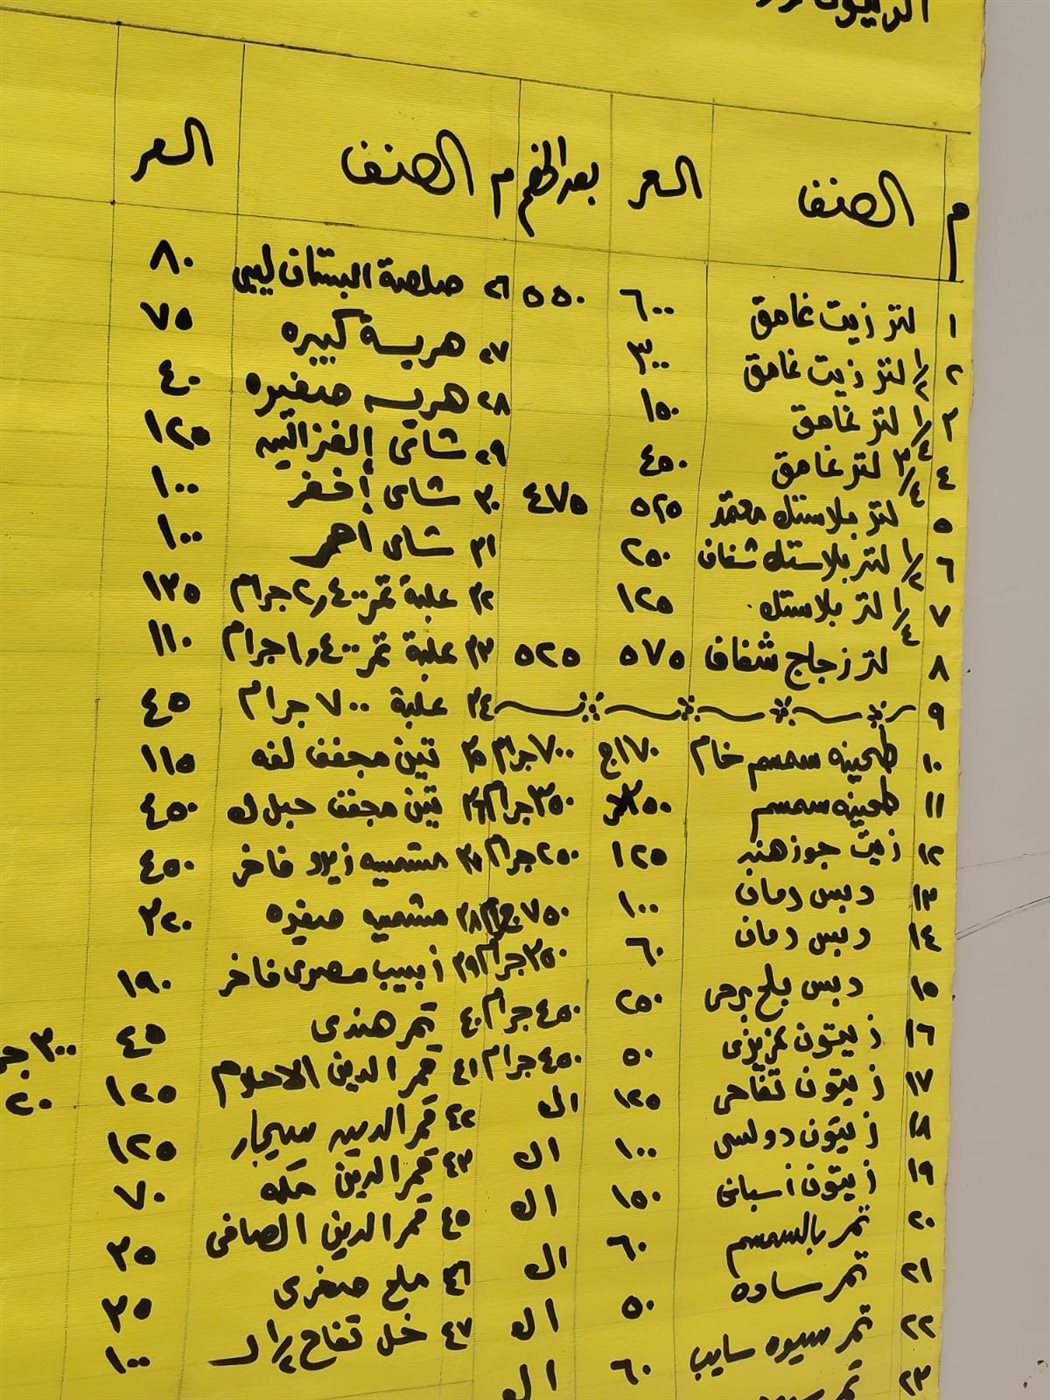 م الصنف السعر بعد الخصم م الصنف السعر
١ لتر زيت غامق ٦٠٠ ٥٥٠ ٢٦ صلصة البستان ليبي ٨٠
٢ ١/٢ لتر زيت غامق ٣٠٠ ٢٧ هريسة كبيره ٧٥
٣ ١/٤ لتر غامق ١٥٠ ٢٨ هريسه صغيره ٤٠
٤ ٣/٤ لتر غامق ٤٥٠ ٢٩ شاى الغزالين ١٢٥
٥ لتر بلاستك معتمد ٥٢٥ ٤٧٥ ٣٠ شاى أخضر ١٠٠
٦ ١/٢ لتر بلاستك شفاف ٢٥٠ ٣١ شاى احمر ١٠٠
٧ ١/٤ لتر بلاستك ١٢٥ ٣٢ علبة تمر ٢,٤٠٠ جرام ١٣٥
٨ لتر زجاج شفاف ٥٧٥ ٥٢٥ ٣٣ علبة تمر ١,٤٠٠ جرام ١١٠
٩ ٣٤ علبة ٧٠٠ جرام ٤٥
١٠ طحينه سمسم خام ١٧٠ج ٧٠٠ جرام ٣٥ تين مجفف لفه ١١٥
١١ طحينه سمسم ٣٥٠ جرام ٣٦ تين مجفف حبل ك ٤٥٠
١٢ زيت جوز هند ١٢٥ ٢٥٠ جرام ٣٧ مشمسيه فاخر ٤٥٠
١٣ دبس رمان ١٠٠ ٧٥٠ جرام ٣٨ مشمسيه صغيره ٣٢٠
١٤ دبس رمان ٦٠ ٣٥٠ جرام ٣٩ زبيب مصرى فاخر ١٩٠
١٥ دبس بلح برحى ٢٥٠ ٤٥٠ جرام ٤٠ تمر هندى ٤٥ ٣٠٠ جر
١٦ زيتون عزيزى ٥٠ ٤٥٠ جرام ٤١ قمر الدين الاحلام ١٢٥ ٢٠
١٧ زيتون تفاحى ١٢٥ ١ك ٤٢ قمر الدين ١٢٥
١٨ زيتون دولسى ١٠٠ ١ك ٤٣ قمر الدين مكه ٧٠
١٩ زيتون أسبانى ١٥٠ ١ك ٤٥ قمر الدين الصافى ٣٥
٢٠ تمر بالسمسم ٦٠ ١ك ٤٦ ملح صخرى ٣٥
٢١ تمر ساده ٥٠ ١ك ٤٧ خل تفاح ١٠٠
٢٢ تمر سيوه سايب ٦٠ ١ك
٢٣ تمر